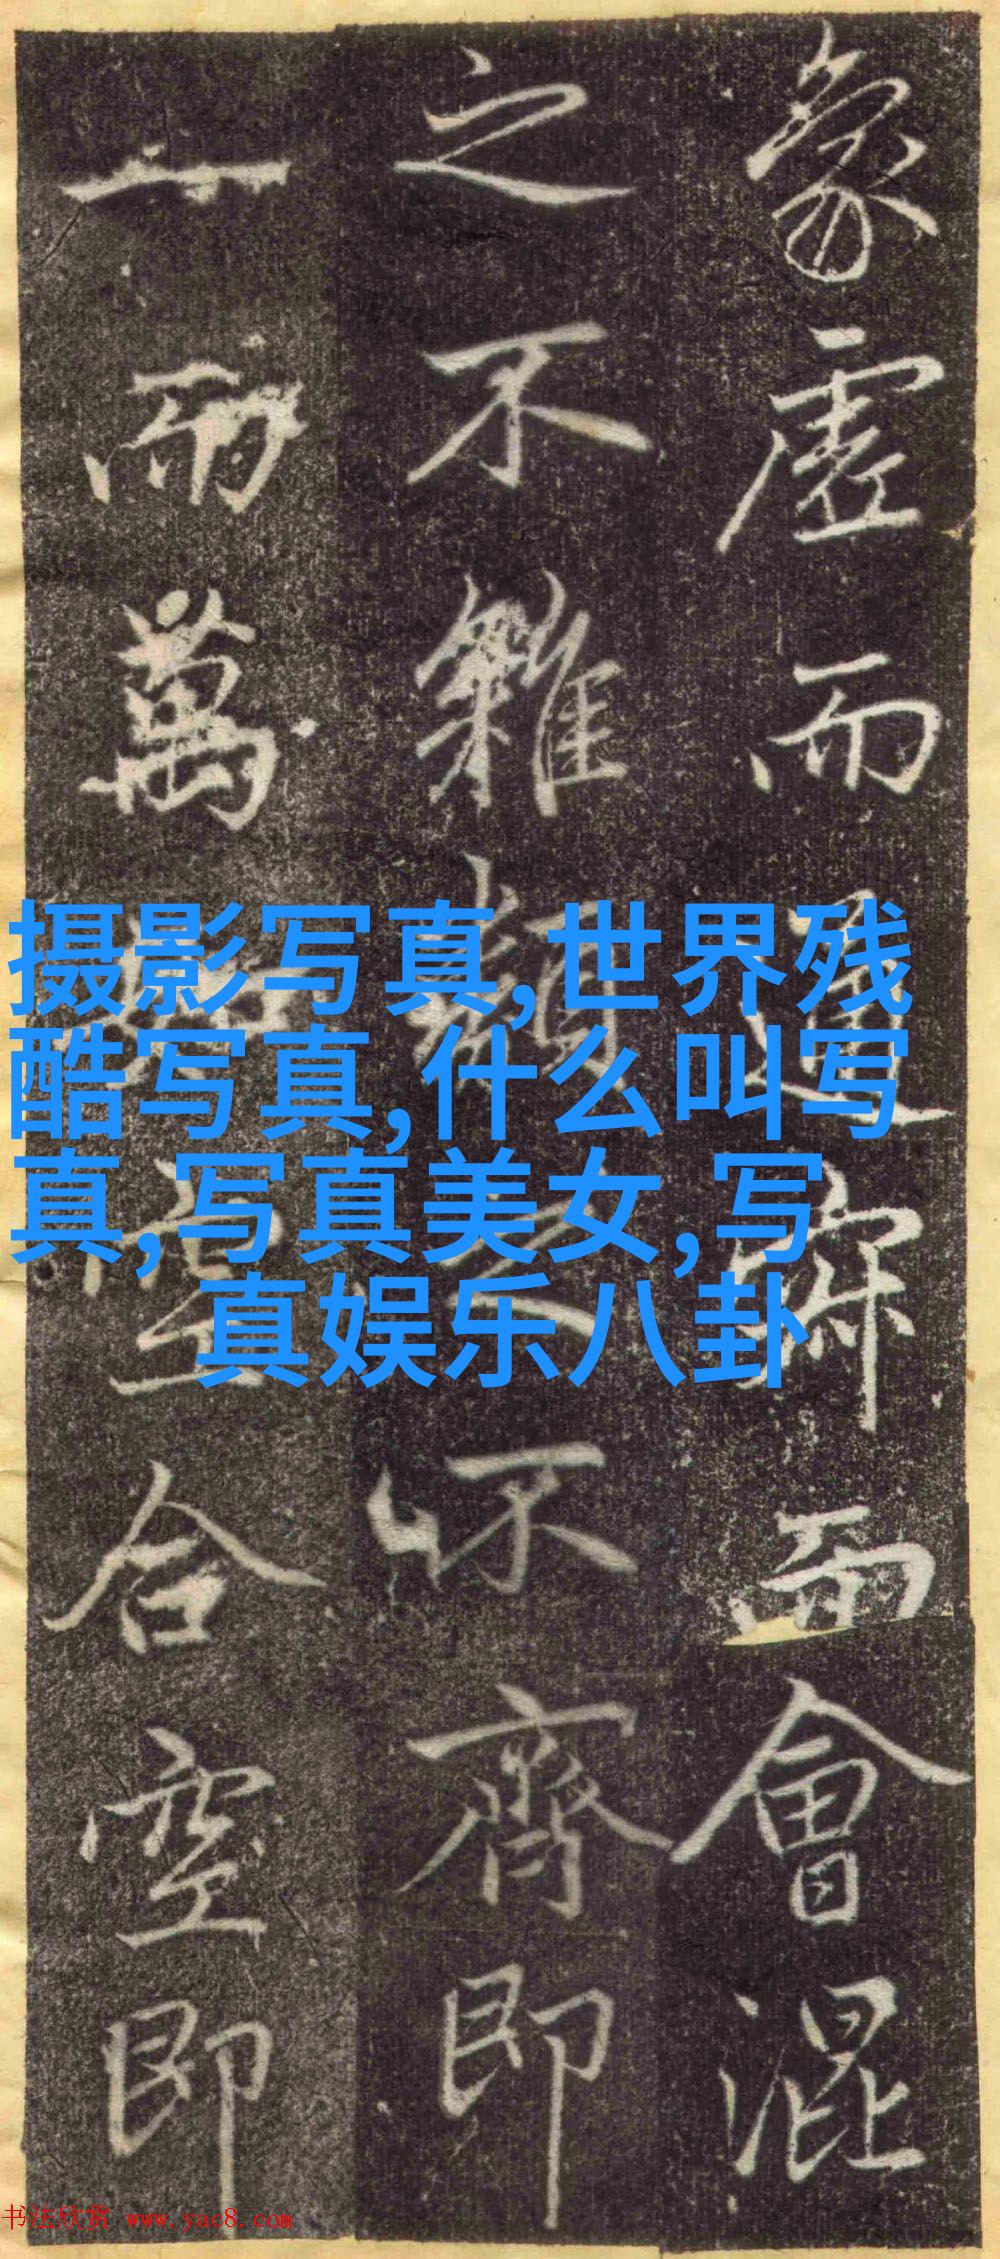 象虛而通寂而會混
之不雜類之不齊即
一而萬如電合空即
摄影写真,世界残
酷写真,什么叫写
真,写真美女,写
真娱乐八卦
书法欣赏 www.yac8.com